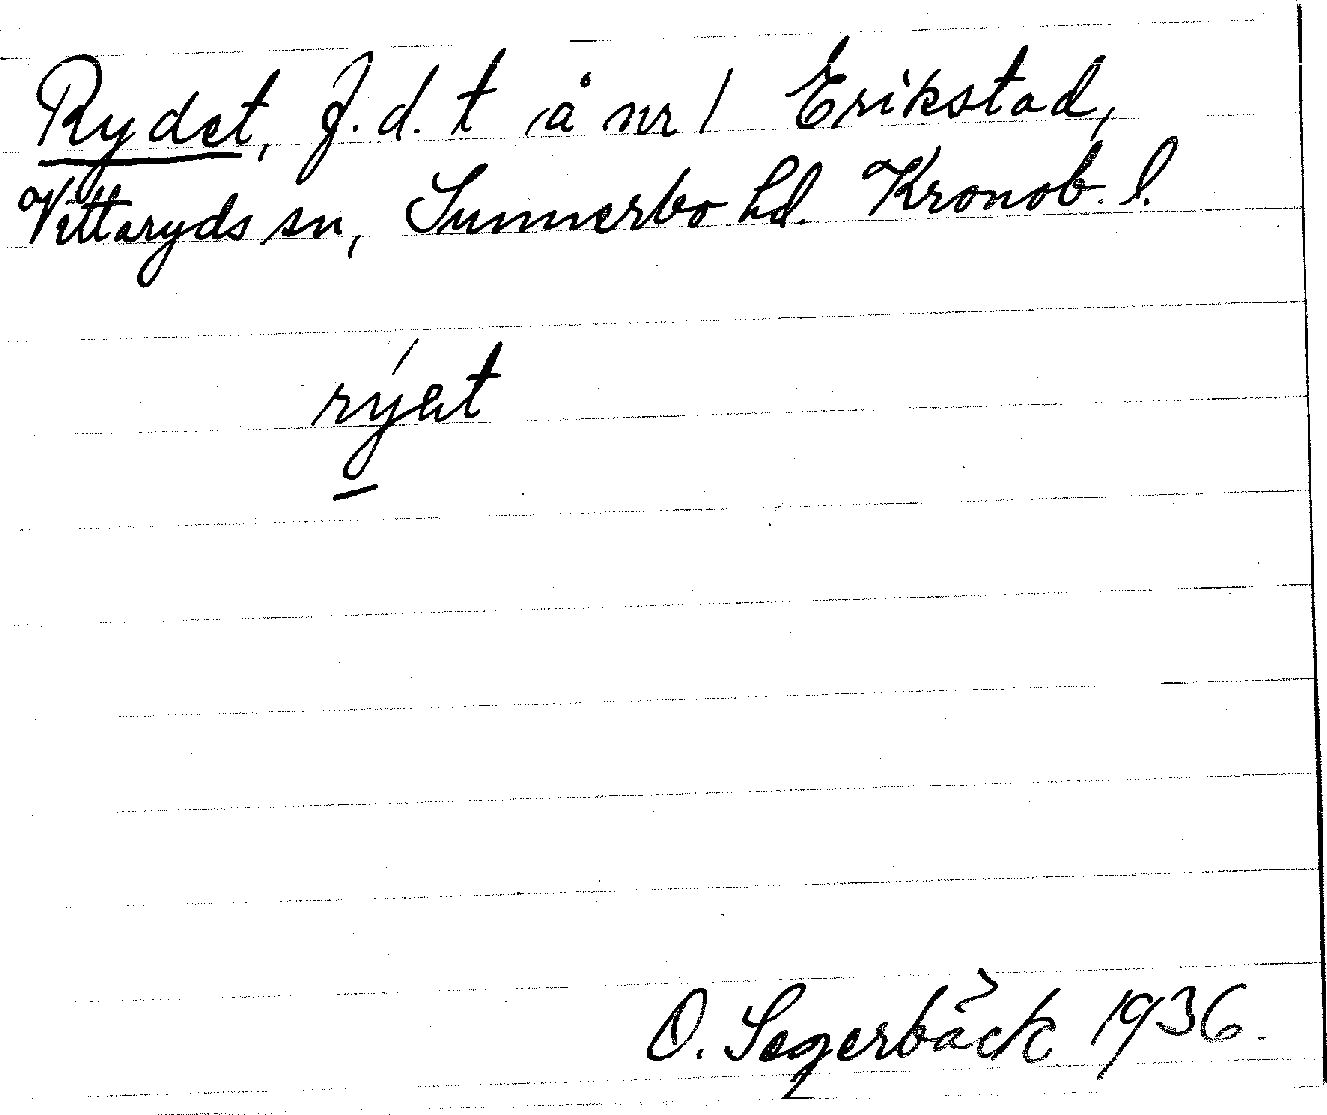 Rydet, f.d. t å nr 1 Erikstad,
Vittaryds sn, Sunnerbo hd. Kronob. l.
rýat
O. Segerbäck 1936.